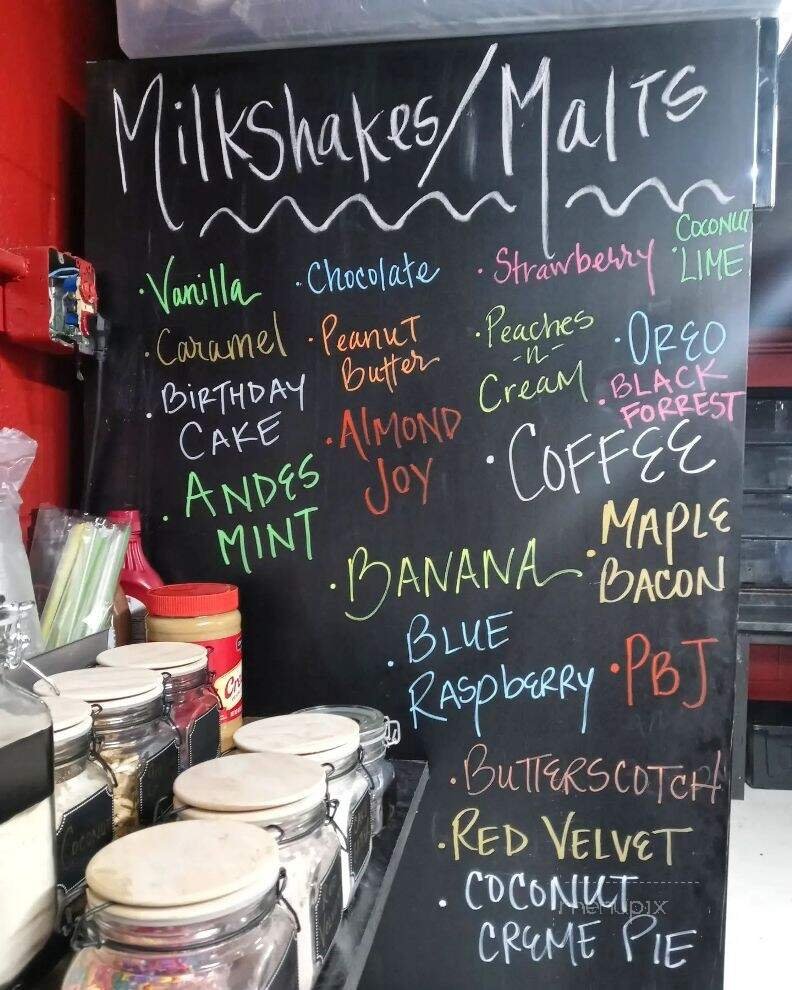 Milkshakes/Malts
· Vanilla
· Chocolate
· Strawberry
· COCONUT
LIME
· Caramel
· Peanut
Butter
· Peaches
-n-
Cream
· OREO
· BIRTHDAY
CAKE
· ALMOND
JOY
· BLACK
FORREST
· COFFEE
· ANDES
MINT
· BANANA
· MAPLE
BACON
· BLUE
RASPBERRY
· PBJ
· BUTTERSCOTCH
· RED VELVET
· COCONUT
CREME PIE
menupix
Coconut